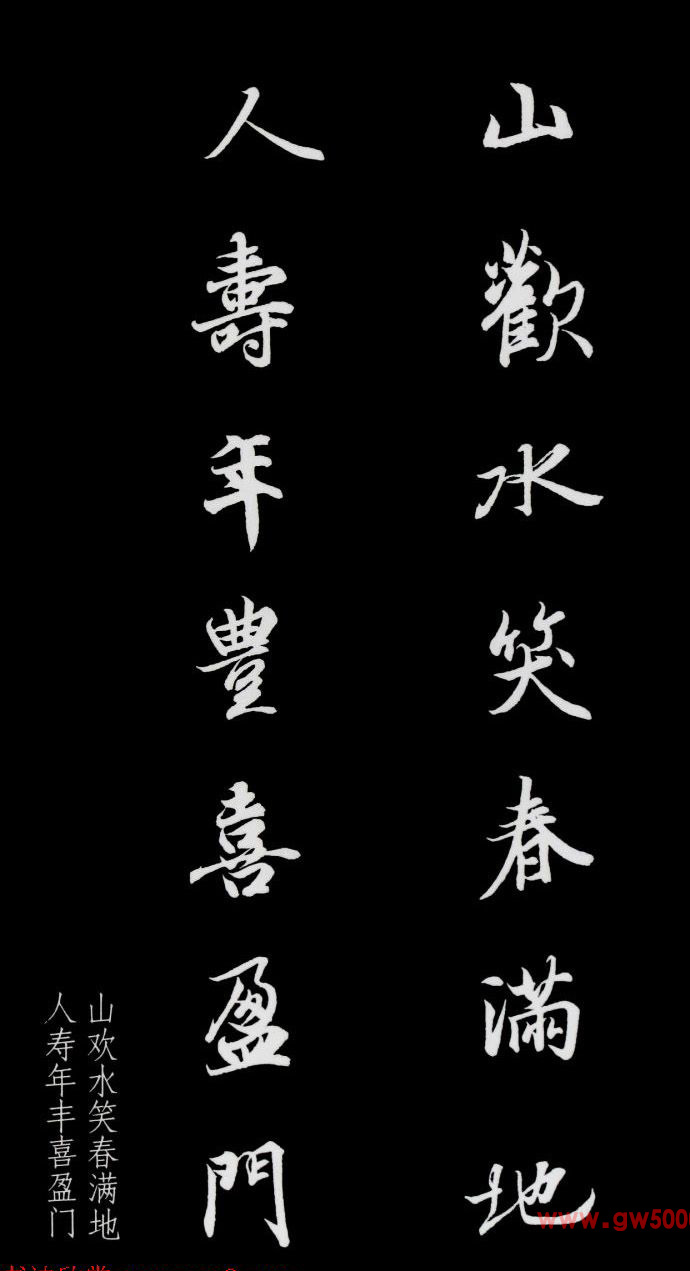 山歡水笑春滿地
人壽年豐喜盈門
山欢水笑春满地
人寿年丰喜盈门
www.gw500